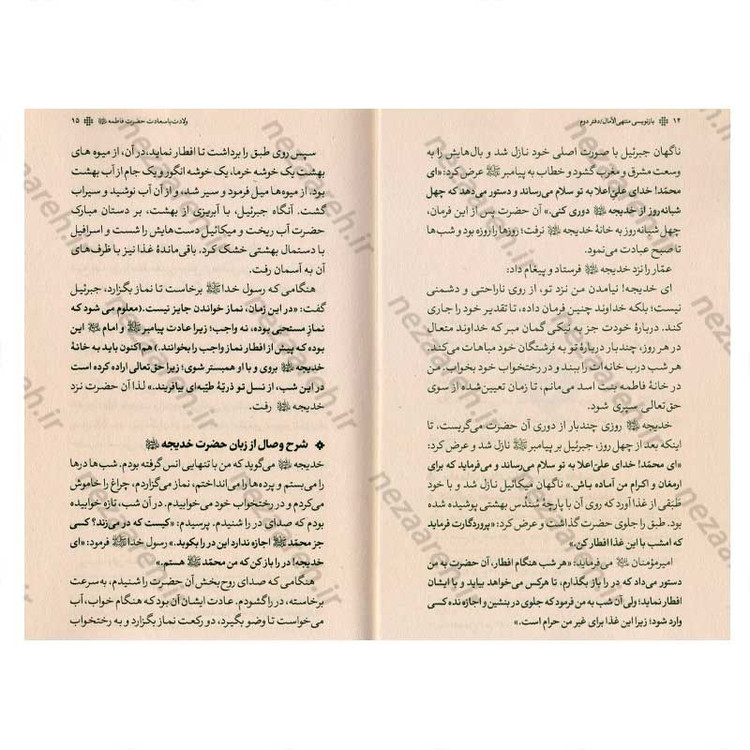 ۱۴ بازنویسی منتهی‌الآمال/دفتر دوم
ناگهان جبرئیل با صورت اصلی خود نازل شد و بال‌هایش را به
وسعت مشرق و مغرب گشود و خطاب به پیامبر ﷺ عرض کرد: «ای
محمّد! خدای علیّ‌اعلا به تو سلام می‌رساند و دستور می‌دهد که چهل
شبانه‌روز از خدیجه دوری کنی.» آن حضرت پس از این فرمان،
چهل شبانه‌روز به خانهٔ خدیجه نرفت؛ روزها را روزه بود و شب‌ها
تا صبح عبادت می‌نمود.
عمّار را نزد خدیجه فرستاد و پیغام داد:
ای خدیجه! نیامدن من نزد تو، از روی ناراحتی و دشمنی
نیست؛ بلکه خداوند چنین فرمان داده، تا تقدیر خود را جاری
کند. دربارهٔ خودت جز به نیکی گمان مبر که خداوند متعال
در هر روز، چندبار دربارهٔ تو به فرشتگان خود مباهات می‌کند.
هر شب درب خانه‌ات را ببند و در رختخواب خود بخواب. من
در خانهٔ فاطمه بنت اسد می‌مانم، تا زمان تعیین‌شده از سوی
حق‌تعالی سپری شود.
خدیجه روزی چندبار از دوری آن حضرت می‌گریست، تا
اینکه بعد از چهل روز، جبرئیل بر پیامبر ﷺ نازل شد و عرض کرد:
«ای محمّد! خدای علیّ‌اعلا به تو سلام می‌رساند و می‌فرماید که برای
ارمغان و اکرام من آماده باش.» ناگهان میکائیل نازل شد و با خود
طَبَقی از غذا آورد که روی آن با پارچهٔ سُندس بهشتی پوشیده شده
بود. طبق را جلوی حضرت گذاشت و عرض کرد: «پروردگارت فرماید
که امشب با این غذا افطار کن.»
امیرمؤمنان می‌فرماید: «هر شب هنگام افطار، آن حضرت به من
دستور می‌داد که در را باز بگذارم، تا هرکس می‌خواهد بیاید و با ایشان
افطار نماید؛ ولی آن شب به من فرمود که جلوی در بنشین و اجازه نده کسی
وارد شود؛ زیرا این غذا برای غیر من حرام است.»
ولادت باسعادت حضرت فاطمه ۱۵
سپس روی طبق را برداشت تا افطار نماید. در آن، از میوه های
بهشت یک خوشه خرما، یک خوشه انگور و یک جام از آب بهشت
بود. از میوه‌ها میل فرمود و سیر شد، و از آن آب نوشید و سیراب
گشت. آنگاه جبرئیل، با آبریزی از بهشت، بر دستان مبارک
حضرت آب ریخت و میکائیل دست‌هایش را شست و اسرافیل
با دستمال بهشتی خشک کرد. باقی‌ماندهٔ غذا نیز با ظرف‌های
آن به آسمان رفت.
هنگامی که رسول خدا ﷺ برخاست تا نماز بگزارد، جبرئیل
گفت: «در این زمان، نماز خواندن جایز نیست. (معلوم می شود که
نماز مستحبی بوده، نه واجب؛ زیرا عادت پیامبر ﷺ و امام این
بوده که پیش از افطار نماز واجب را بخوانند.) هم‌اکنون باید به خانهٔ
خدیجه بروی و با او همبستر شوی؛ زیرا حق‌تعالی اراده کرده است
در این شب، از نسل تو ذرّیّهٔ طیّبه‌ای بیافریند.» لذا آن حضرت نزد
خدیجه رفت.
شرح وصال از زبان حضرت خدیجه
خدیجه می‌گوید که من با تنهایی انس گرفته بودم. شب‌ها درها
را می‌بستم و پرده‌ها را می‌انداختم، نماز می‌گزاردم، چراغ را خاموش
می‌کردم و در رختخواب خود می‌خوابیدم. در آن شب، تازه خوابیده
بودم که صدای در را شنیدم. پرسیدم: «کیست که در می‌زند؟ کسی
جز محمّد ﷺ اجازه ندارد این در را بکوبد.» رسول خدا ﷺ فرمود: «ای
خدیجه! در را باز کن که من محمّد ﷺ هستم.»
هنگامی که صدای روح‌بخش آن حضرت را شنیدم، به‌سرعت
برخاسته، در را گشودم. عادت ایشان آن بود که هنگام خواب، آب
می‌خواست تا وضو بگیرد، دو رکعت نماز بگزارد و به رختخواب
nezaareh.ir